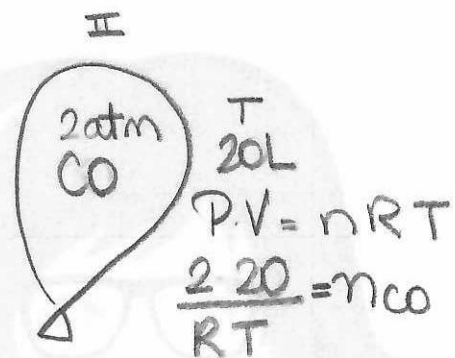 II
2atm
CO
T
20L
P.V = nRT
2 20
RT
= nco